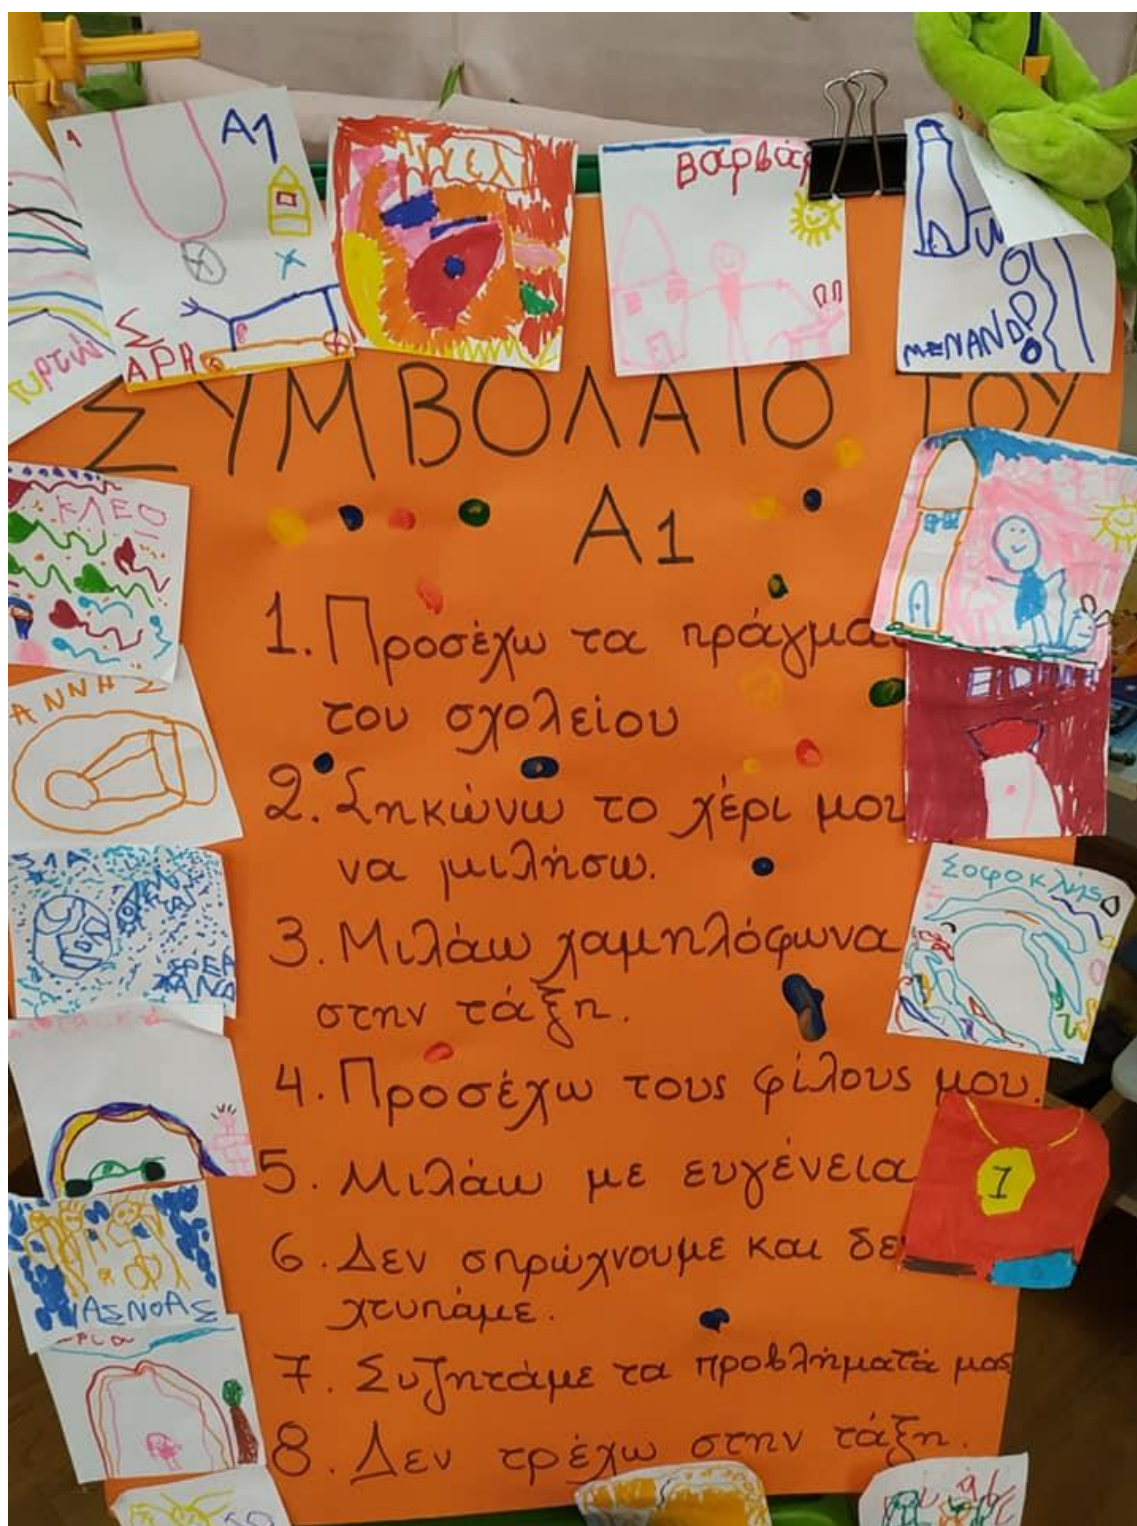 Α1
ΣΑΡΗ
Βαρβάρ
ΜΕΝΑΝΔ
ΣΥΜΒΟΛΑΙΟ ΤΟΥ
Α1
ΚΛΕΟ
ΑΝΝΗΣ
1. Προσέχω τα πράγμα
του σχολείου
2. Σηκώνω το χέρι μου
να μιλήσω.
Σοφοκλής
3. Μιλάω χαμηλόφωνα
στην τάξη.
4. Προσέχω τους φίλους μου.
5. Μιλάω με ευγένεια
1
6. Δεν σπρώχνουμε και δε
χτυπάμε.
ΑΣΝΟΑΣ
7. Συζητάμε τα προβλήματά μας
8. Δεν τρέχω στην τάξη.